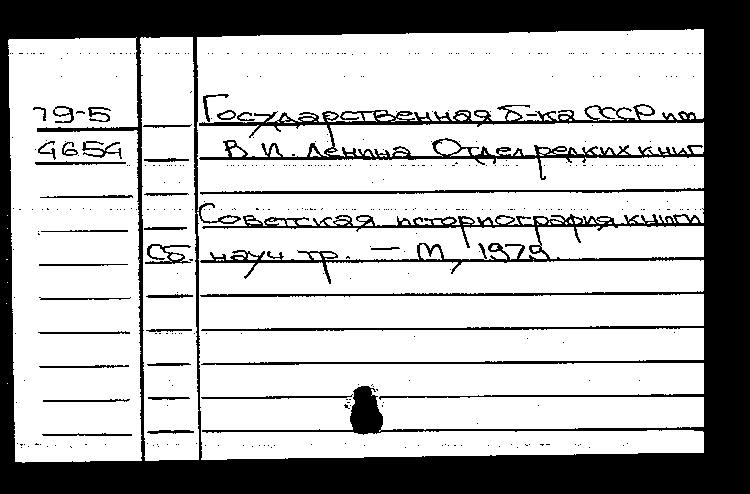 79-5 Государственная б-ка СССР им
4654 В. И. Ленина Отдел редких книг
Советская историография книги
Сб. науч. тр. — М, 1979.